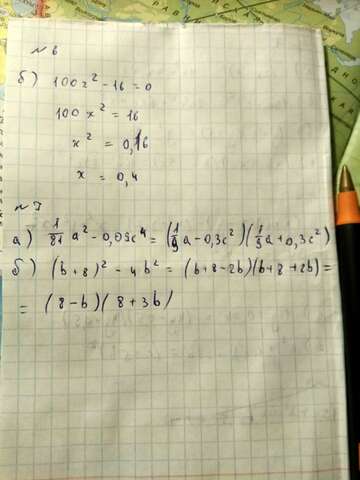 № 6
б) 100x² - 16 = 0
100x² = 16
x² = 0,16
x = 0,4
№ 7
а) 1/81 a² - 0,09c⁴ = (1/9 a - 0,3c²)(1/9 a + 0,3c²)
б) (b+8)² - 4b² = (b+8-2b)(b+8+2b) =
= (8-b)(8+3b)